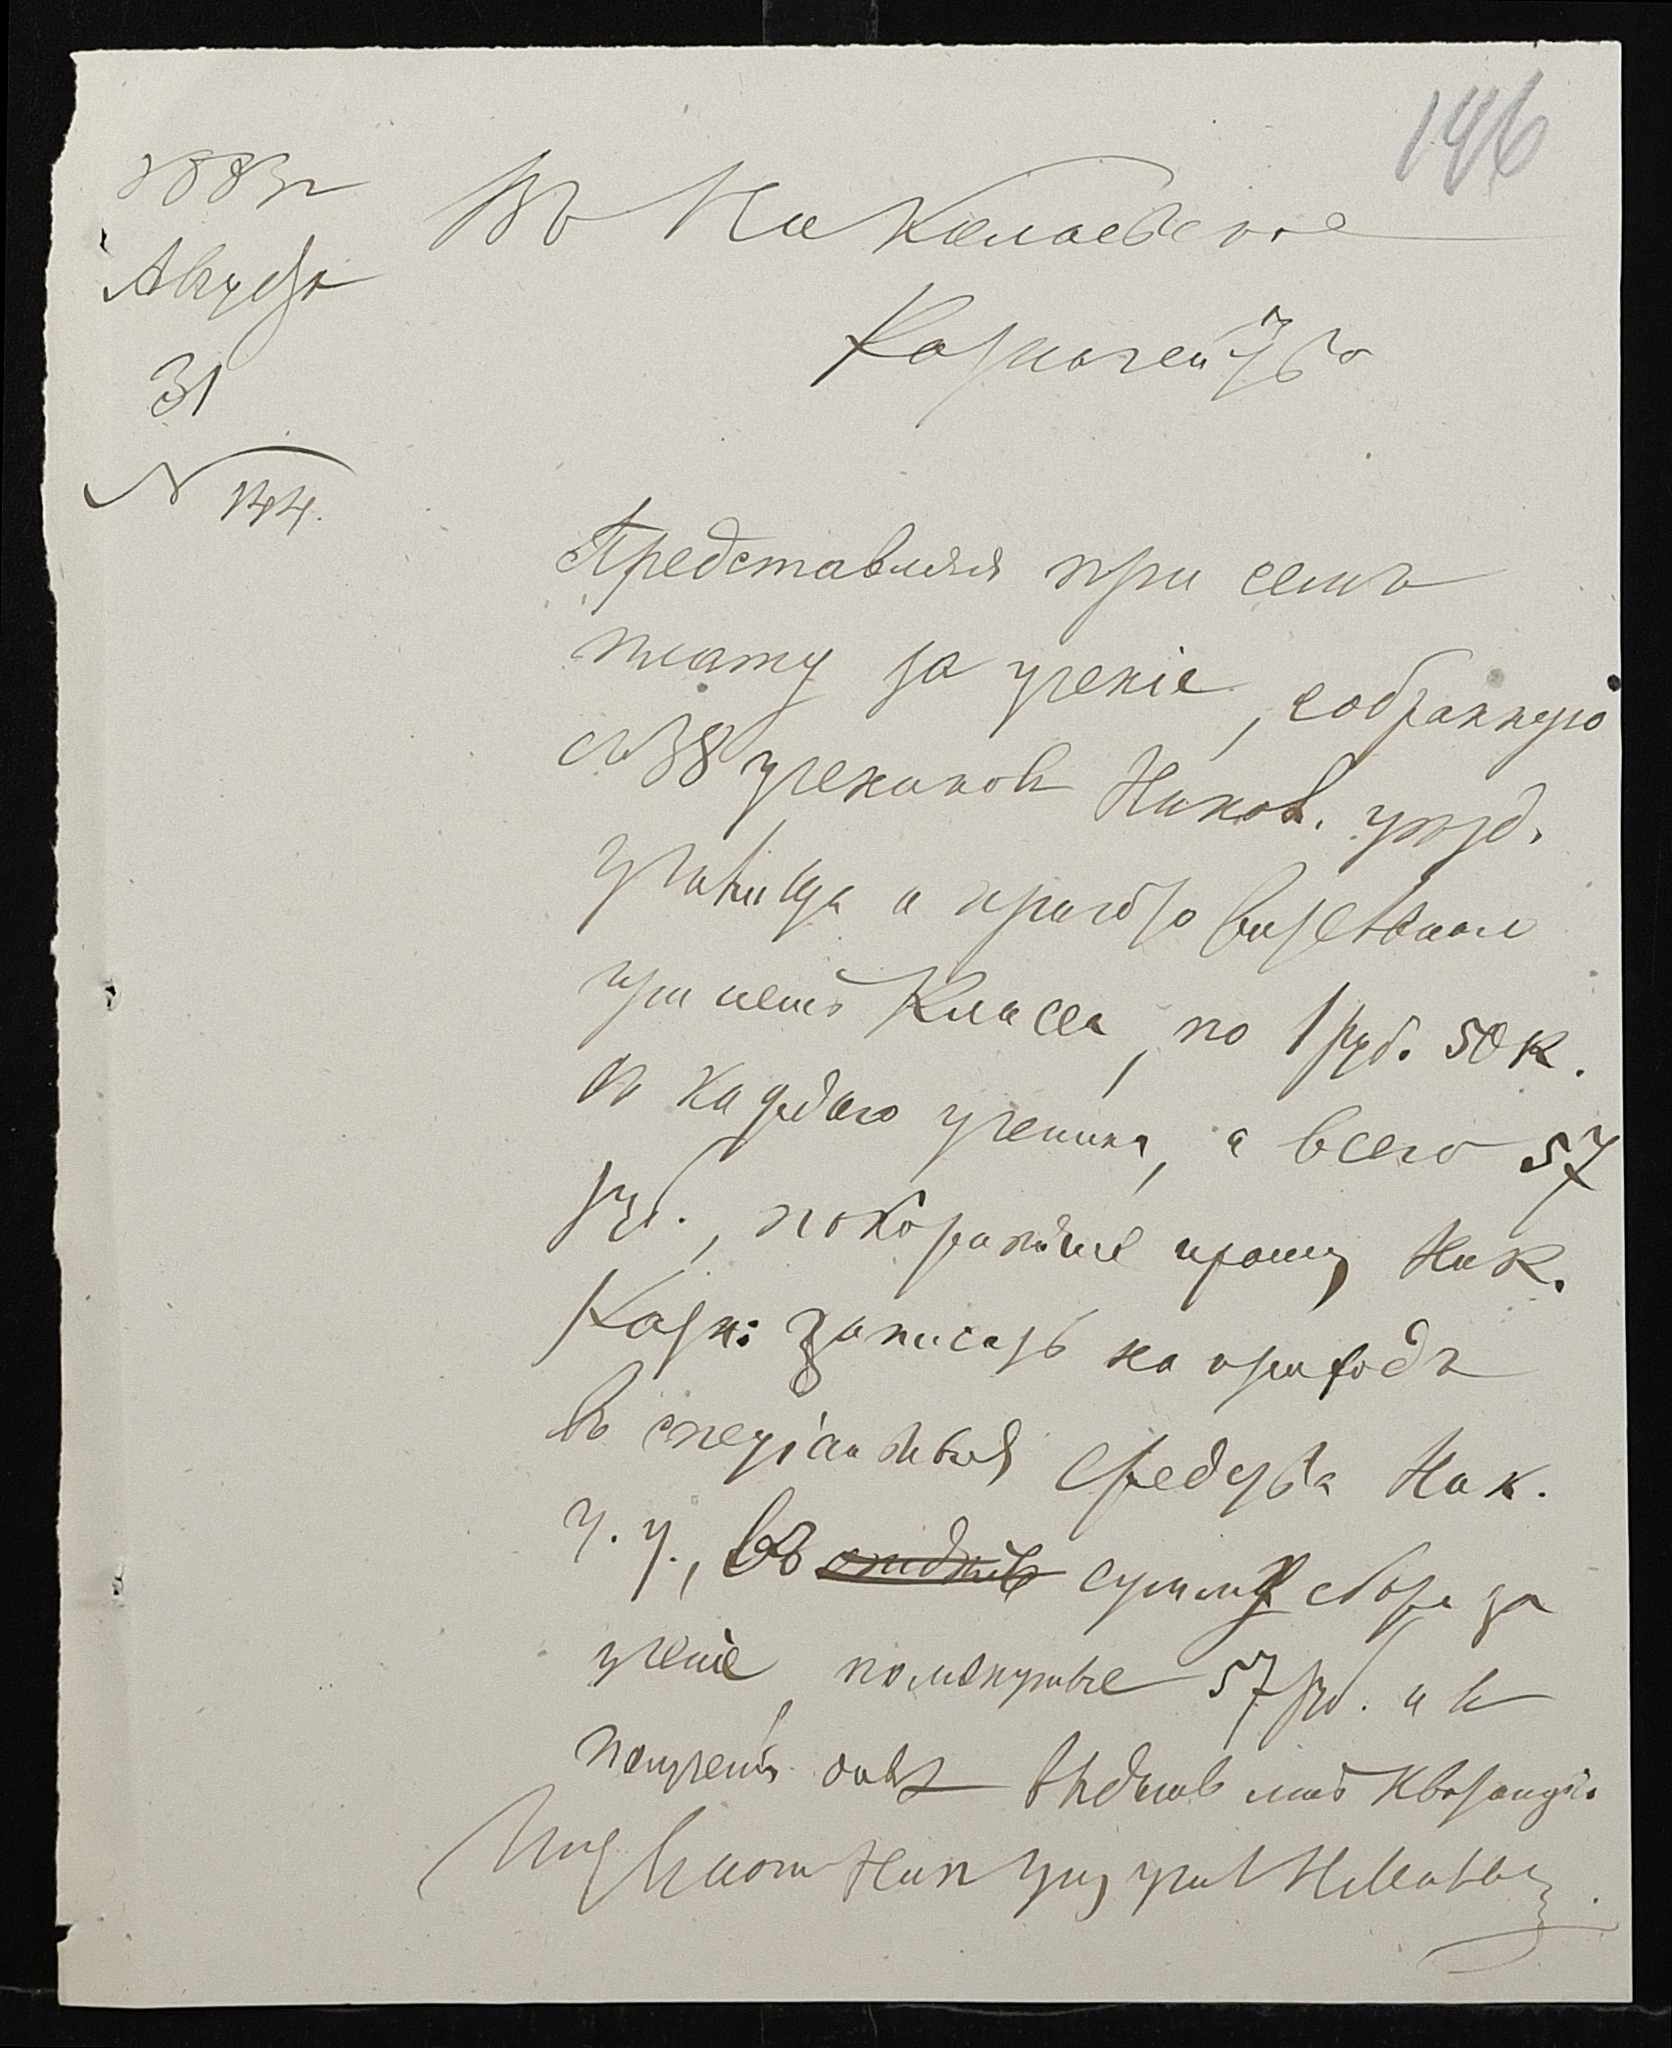 146
1883 г
Августа
31
N 144.
Въ Николаевское
Казначейство
Представляя при семъ
плату за ученіе, собранную
съ 38 учениковъ Никол. уѣзд.
училища и приготовительнаго
при немъ класса, по 1 руб. 50 к.
съ каждаго ученика, а всего 57
руб., покорнѣйше прошу Ник.
Казн: записать на приходъ
въ спеціальныя средства Ник.
у. у., въ сумму сбора за
ученіе поменутые 57 руб. и въ
полученіи оныхъ выдать мнѣ квитанцію
Шт. Смотр Ник Уѣзд учил